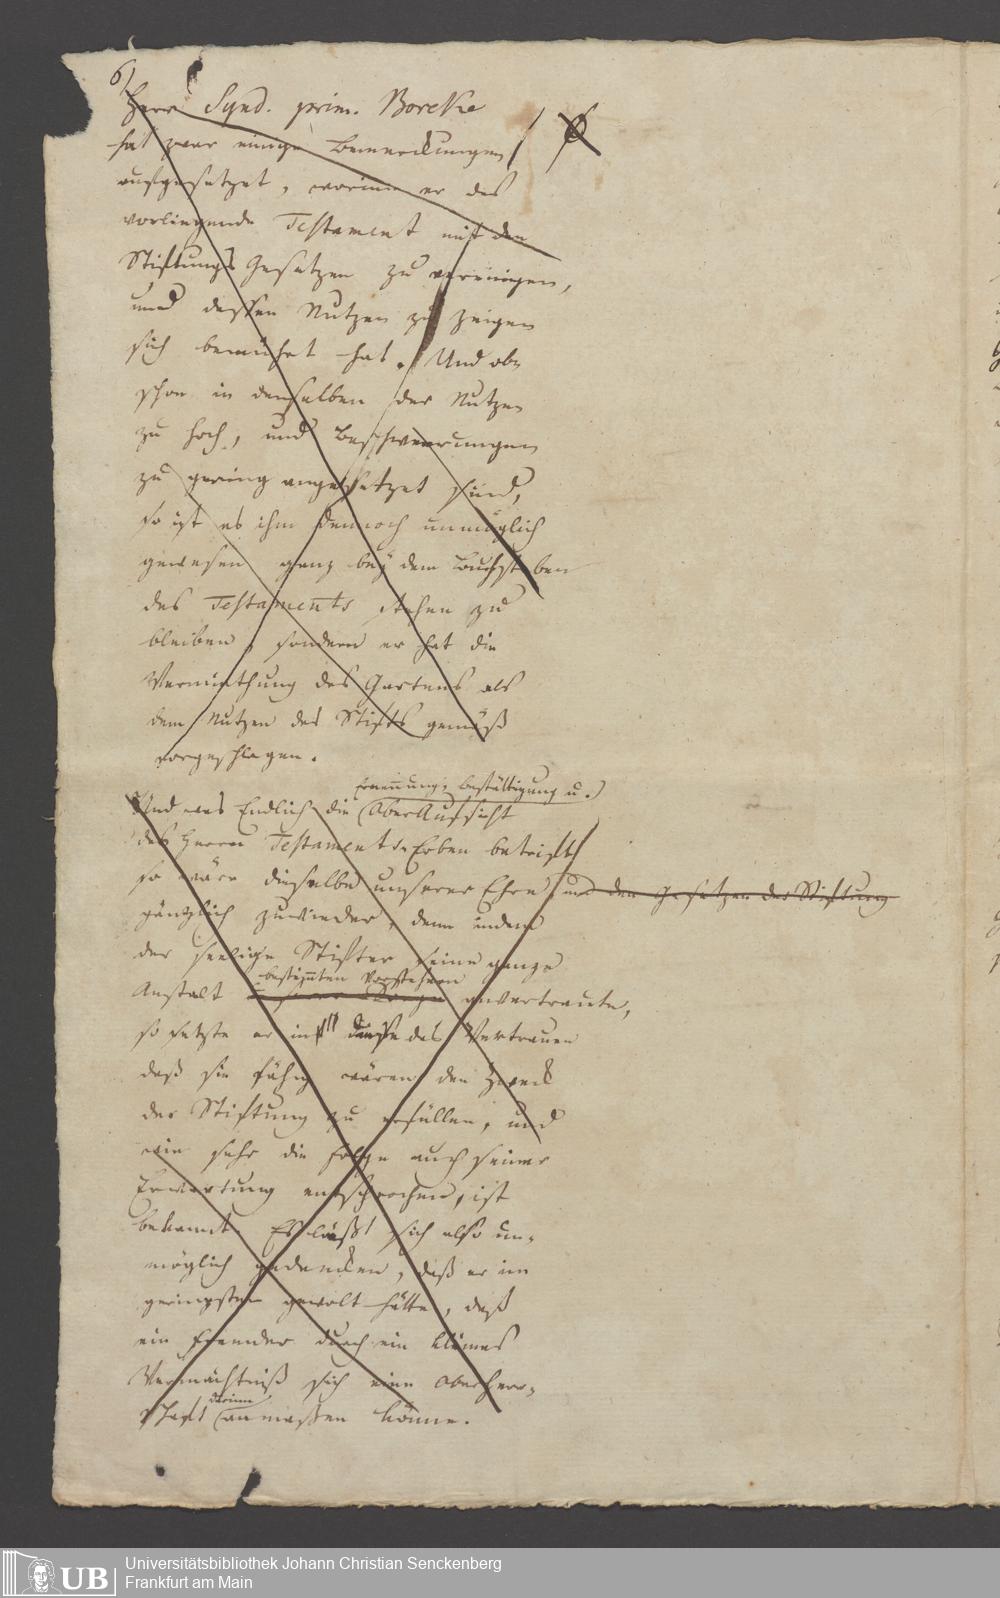 6)
Herr Synd. prim. Borcke
hat zwar einige Bemerckungen
aufgesetzet, worinn er das
vorliegende Testament mit den
Stiftungs Gesetzen zu vereinigen,
und dessen Nutzen zu zeigen
sich bemühet hat. Und ob-
schon in denselben der Nutzen
zu hoch, und Beschwerungen
zu gering angesetzet sind,
so ist es ihm dennoch unmöglich
gewesen ganz bey dem Buchstaben
des Testaments stehen zu
bleiben, sondern er hat die
Vermiethung des Gartens als
dem Nutzen des Stifts gemäß
vorgeschlagen.
Ernennung, bestättigung u.
Und was Endlich die OberAufsicht
des Herrn Testaments-Erben betrifft
so wäre dieselbe unserer Ehre, und den Gesetzen der Stiftung
gäntzlich zuwieder, denn indem
der seelige Stifter seine ganze
bestimten Vorstehern
Anstalt anvertraute,
so setzte er in das Vertrauen
daß sie fähig wären den Zweck
der Stiftung zu erfüllen, und
wie sehr die Folge auch seiner
Erwartung entsprochen, ist
bekannt. Es läßt sich also un-
möglich gedencken, daß er im
geringsten gewolt hätte, daß
ein Fremder durch ein kleines
Vermächtniß sich eine Oberherr-
darinn
schaft anmassen könne.
UB
Universitätsbibliothek Johann Christian Senckenberg
Frankfurt am Main